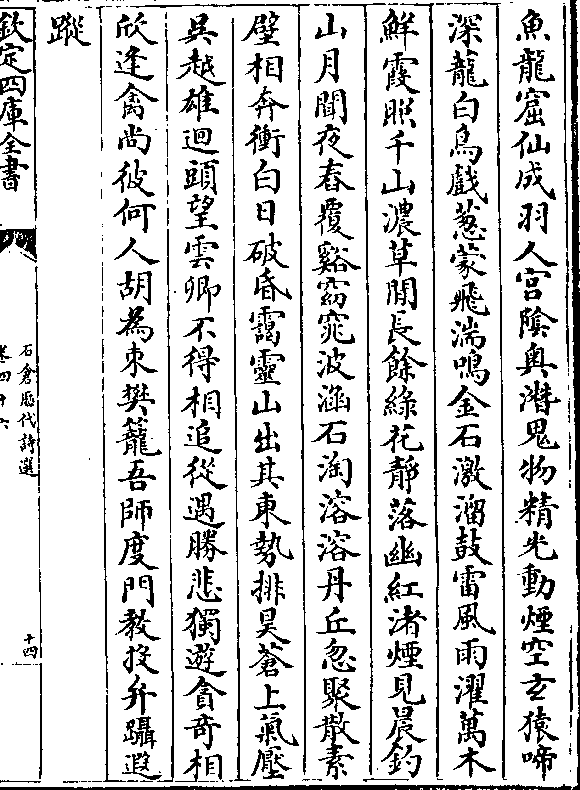 魚龍窟仙成羽人宮陰奥潛鬼物精光動煙空玄猿啼
深蘢白鳥戲葱蒙飛湍鳴金石激溜鼓雷風雨濯萬木
鮮霞照千山濃草閒長餘綠花靜落幽紅渚煙見晨釣
山月聞夜舂覆谿窈窕波涵石淘溶溶丹丘忽聚散素
壁相奔衝白日破昏靄靈山出其東勢排昊蒼上氣壓
吳越雄迴頭望雲卿不得相追從遇勝悲獨遊貪奇相
欣逢禽尚彼何人胡為束樊籠吾師度門教投弁躡遐
蹤
欽定四庫全書
石倉歷代詩選
卷四十六
十四